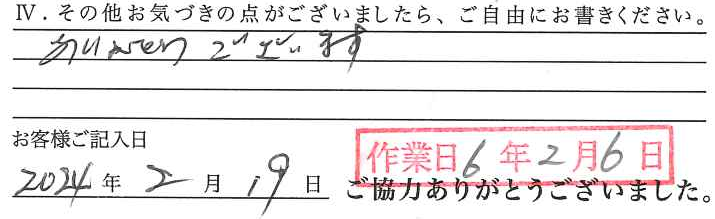 Ⅳ．その他お気づきの点がございましたら、ご自由にお書きください。
ありがとうございます
お客様ご記入日
作業日6年2月6日
2024年2月19日
ご協力ありがとうございました。